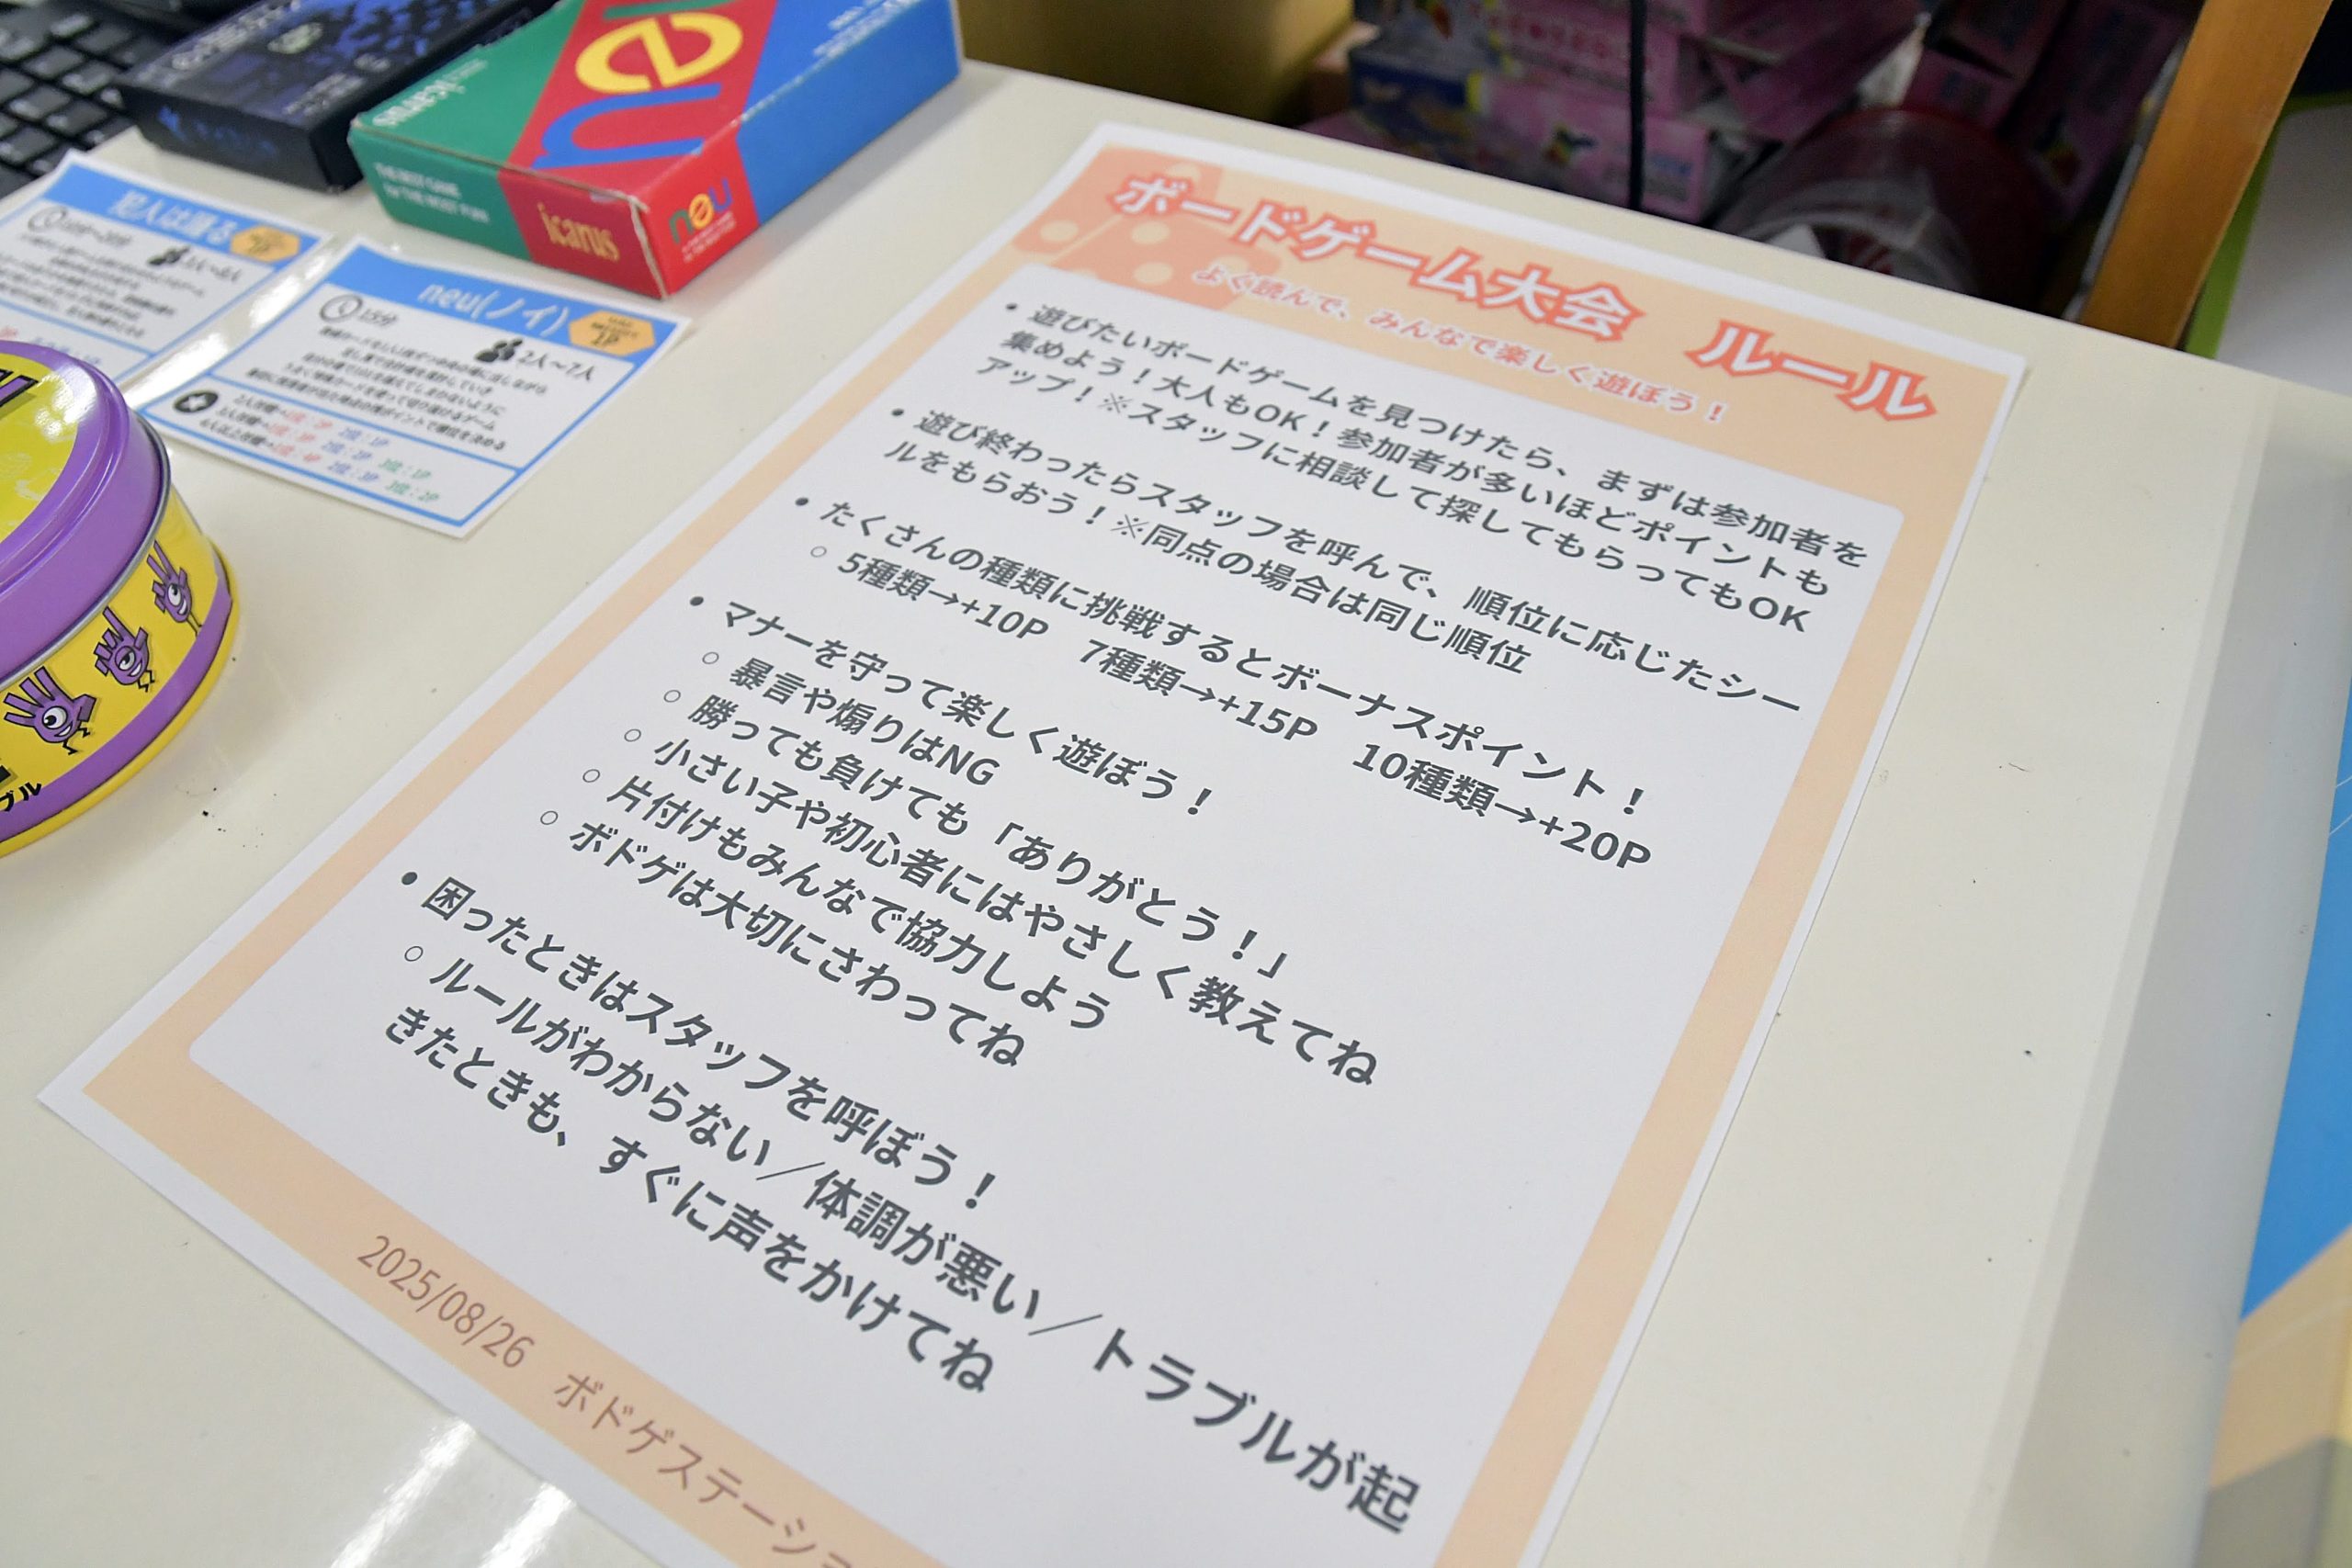 ボードゲーム大会 ルール
よく読んで、みんなで楽しく遊ぼう！
• 遊びたいボードゲームを見つけたら、まずは参加者を
集めよう！大人もOK！参加者が多いほどポイントも
アップ！※スタッフに相談して探してもらってもOK
• 遊び終わったらスタッフを呼んで、順位に応じたシー
ルをもらおう！※同点の場合は同じ順位
• たくさんの種類に挑戦するとボーナスポイント！
○ 5種類→+10P 7種類→+15P 10種類→+20P
• マナーを守って楽しく遊ぼう！
○ 暴言や煽りはNG
○ 勝っても負けても「ありがとう！」
○ 小さい子や初心者にはやさしく教えてね
○ 片付けもみんなで協力しよう
○ ボドゲは大切にさわってね
• 困ったときはスタッフを呼ぼう！
○ ルールがわからない／体調が悪い／トラブルが起
きたときも、すぐに声をかけてね
2025/08/26 ボドゲステーショ
neu
icarus
THE BEST GAME
FOR THE BEST FUN
icarus
neu
犯人は踊る
neu(ノイ)
1P
15分
2人～7人
ブル